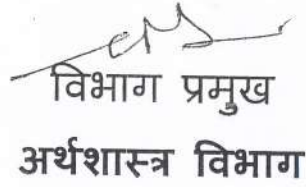 विभाग प्रमुख
अर्थशास्त्र विभाग